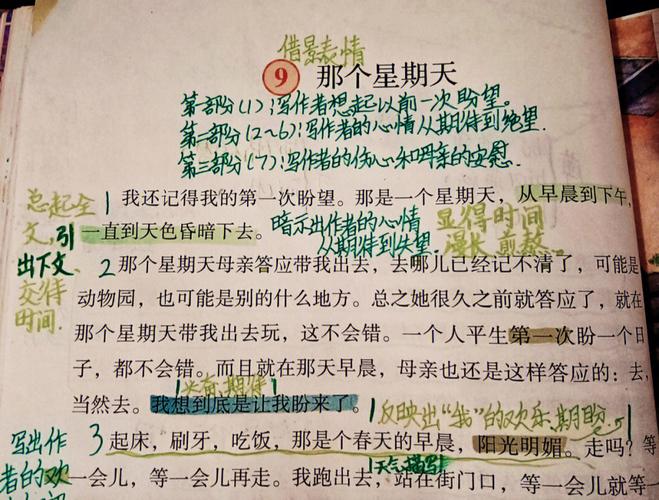 借景表情
9 那个星期天
第一部分(1):写作者想起以前一次盼望。
第二部分(2~6):写作者的心情从期待到绝望.
第三部分(7):写作者的伤心和母亲的安慰
总起全文,引出下文.
交待时间.
1 我还记得我的第一次盼望。那是一个星期天,从早晨到下午,
一直到天色昏暗下去。
暗示出作者的心情
从期待到失望.
显得时间
漫长 煎熬..
2 那个星期天母亲答应带我出去,去哪儿已经记不清了,可能是
动物园,也可能是别的什么地方。总之她很久之前就答应了,就在
那个星期天带我出去玩,这不会错。一个人平生第一次盼一个日
子,都不会错。而且就在那天早晨,母亲也还是这样答应的:去,
当然去。我想到底是让我盼来了。
反映出“我”的欢乐.期盼.
3 起床,刷牙,吃饭,那是个春天的早晨,阳光明媚。走吗?等
天气描写
写出作
者的欢
一会儿,等一会儿再走。我跑出去,站在街门口,等一会儿就等一